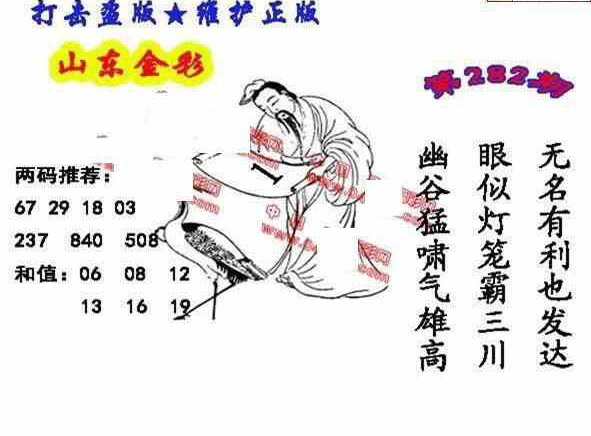 打击盗版★维护正版
山东金彩
第282期
两码推荐:
67 29 18 03
237 840 508
和值:06 08 12
13 16 19
1
无名有利也发达
眼似灯笼霸三川
幽谷猛啸气雄高